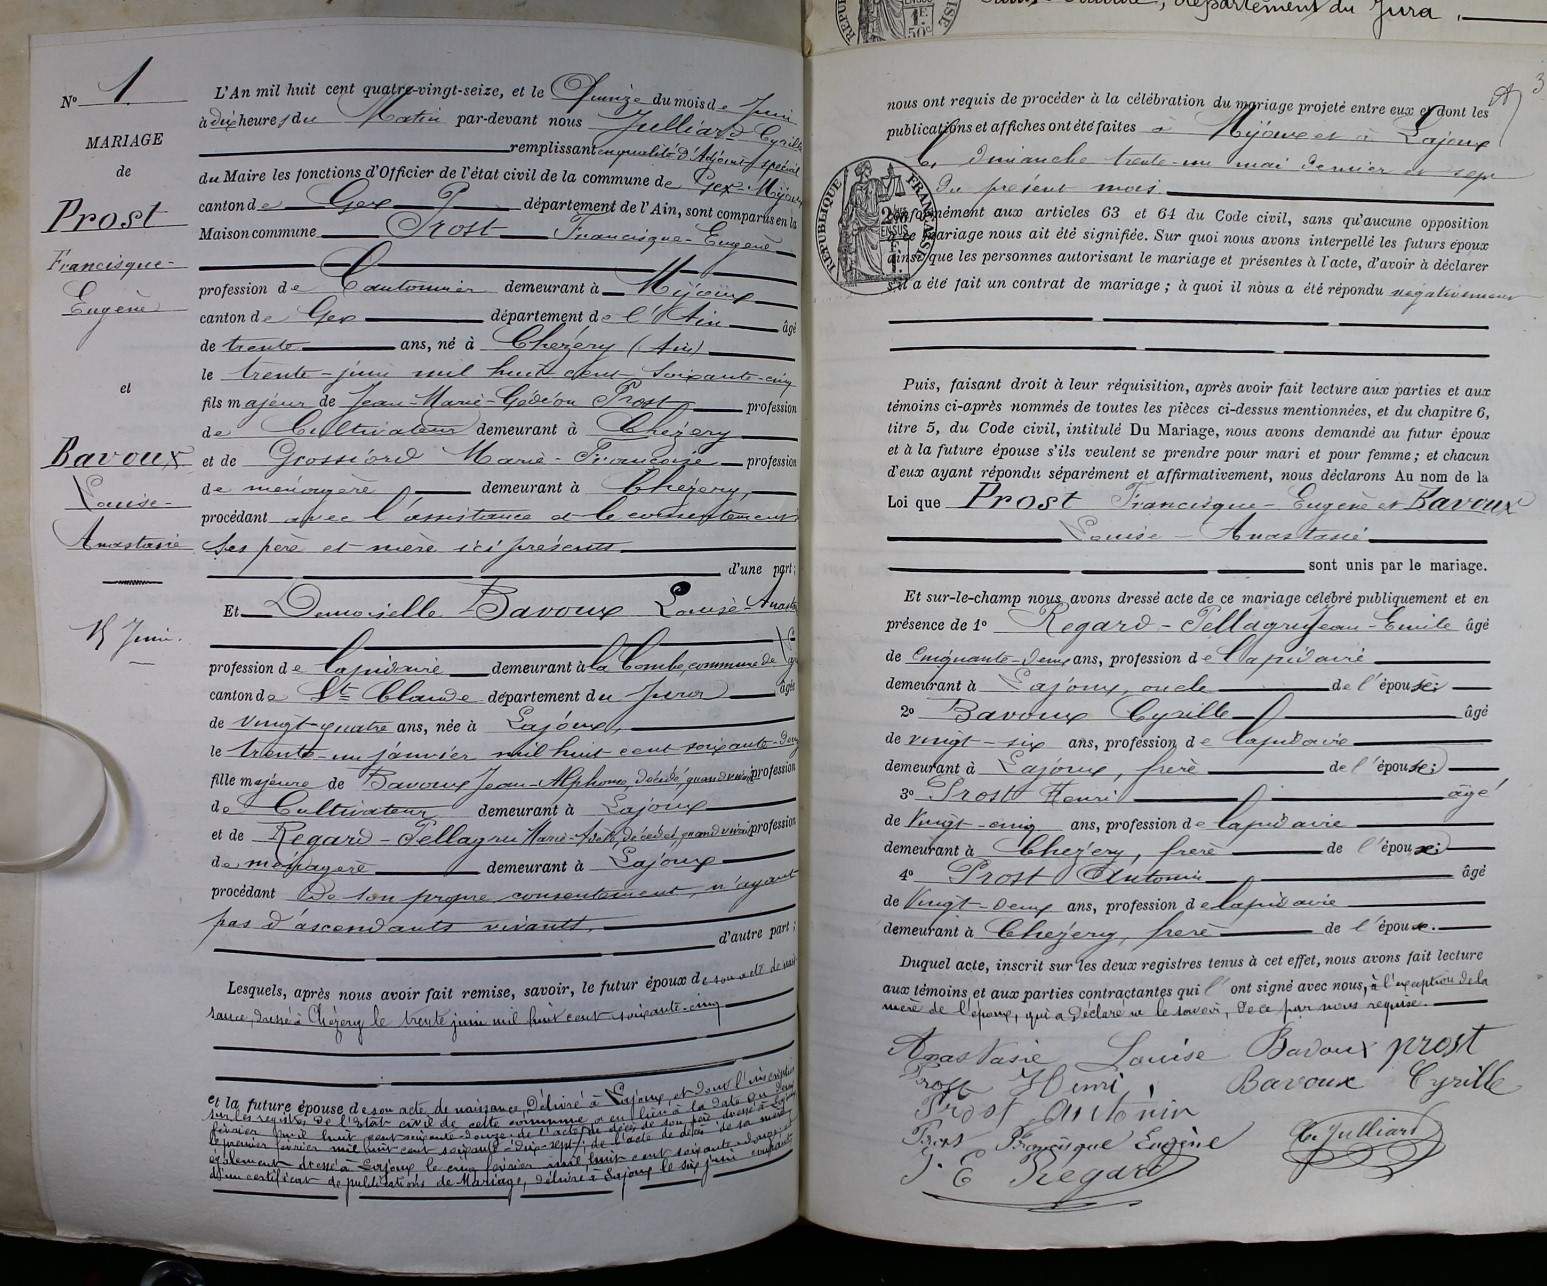 Nº 1
MARIAGE
de
Prost
Francisque-
Eugène
et
Bavoux
Louise-
Anastasie
15 Juin.
L'An mil huit cent quatre-vingt-seize, et le Quinze du mois de Juin
à dix heures du Matin par-devant nous Julliard Cyrille
remplissant en qualité d'Adjoint spécial
du Maire les fonctions d'Officier de l'état civil de la commune de Gex-Mijoux
canton de Gex département de l'Ain, sont comparus en la
Maison commune Prost Francisque-Eugène
profession de Cantonnier demeurant à Mijoux
canton de Gex département de l'Ain âgé
de trente ans, né à Chézery (Ain)
le trente-juin mil huit cent soixante-cinq
fils majeur de Jean-Marie-Gédéon Prost profession
de Cultivateur demeurant à Chézery
et de Grossiord Marie-Françoise profession
de ménagère demeurant à Chézery,
procédant avec l'assistance et le consentement
ses père et mère ici présents
d'une part;
Et Demoiselle Bavoux Louise-Anastasie
profession de lapidaire demeurant à la Combe, commune de
canton de St Claude département du Jura âgée
de vingt-quatre ans, née à Lajoux,
le trente-un janvier mil huit cent soixante-douze
fille majeure de Bavoux Jean-Alphonse, décédé, quand vivait profession
de Cultivateur demeurant à Lajoux
et de Regard-Pellagru Marie- décédée, quand vivait profession
de ménagère demeurant à Lajoux
procédant de son propre consentement, n'ayant
pas d'ascendants vivants,
d'autre part;
Lesquels, après nous avoir fait remise, savoir, le futur époux de son acte de nais
sance, dressé à Chézery le trente juin mil huit cent soixante-cinq
et la future épouse de son acte de naissance, délivré à Lajoux, et dont l'inscription
sur les registres de l'état civil de cette commune a eu lieu à la date du deux
février mil huit cent soixante-douze; de l'acte de décès de son père dressé à Lajoux
le premier février mil huit cent soixante-dix-sept; de l'acte de décès de sa mère
également dressé à Lajoux le cinq février mil huit cent soixante-douze, et
d'un certificat de publications de Mariage, délivré à Lajoux le six juin courant
département du Jura.
3
nous ont requis de procéder à la célébration du mariage projeté entre eux et dont les
publications et affiches ont été faites à Mijoux et à Lajoux
les dimanche trente-un mai dernier et sept
du présent mois.
RÉPUBLIQUE FRANÇAISE
conformément aux articles 63 et 64 du Code civil, sans qu'aucune opposition
à ce mariage nous ait été signifiée. Sur quoi nous avons interpellé les futurs époux
ainsi que les personnes autorisant le mariage et présentes à l'acte, d'avoir à déclarer
s'il a été fait un contrat de mariage; à quoi il nous a été répondu négativement
Puis, faisant droit à leur réquisition, après avoir fait lecture aux parties et aux
témoins ci-après nommés de toutes les pièces ci-dessus mentionnées, et du chapitre 6,
titre 5, du Code civil, intitulé Du Mariage, nous avons demandé au futur époux
et à la future épouse s'ils veulent se prendre pour mari et pour femme; et chacun
d'eux ayant répondu séparément et affirmativement, nous déclarons Au nom de la
Loi que Prost Francisque-Eugène et Bavoux
Louise-Anastasie
sont unis par le mariage.
Et sur-le-champ nous avons dressé acte de ce mariage célébré publiquement et en
présence de 1º Regard-Pellagru Jean-Emile âgé
de cinquante-deux ans, profession de lapidaire
demeurant à Lajoux, oncle de l'épouse;
2º Bavoux Cyrille âgé
de vingt-six ans, profession de lapidaire
demeurant à Lajoux, frère de l'épouse;
3º Prost Henri âgé
de vingt-cinq ans, profession de lapidaire
demeurant à Chézery, frère de l'époux;
4º Prost Antonin âgé
de vingt-deux ans, profession de lapidaire
demeurant à Chézery, frère de l'époux.
Duquel acte, inscrit sur les deux registres tenus à cet effet, nous avons fait lecture
aux témoins et aux parties contractantes qui l'ont signé avec nous, à l'exception de la
mère de l'époux, qui a déclaré ne le savoir, de ce par nous requise.
Anastasie Louise Bavoux prost
Prost Henri, Bavoux Cyrille
Prost Antonin
Prost Francisque Eugène Cy Julliard
J. E Regard